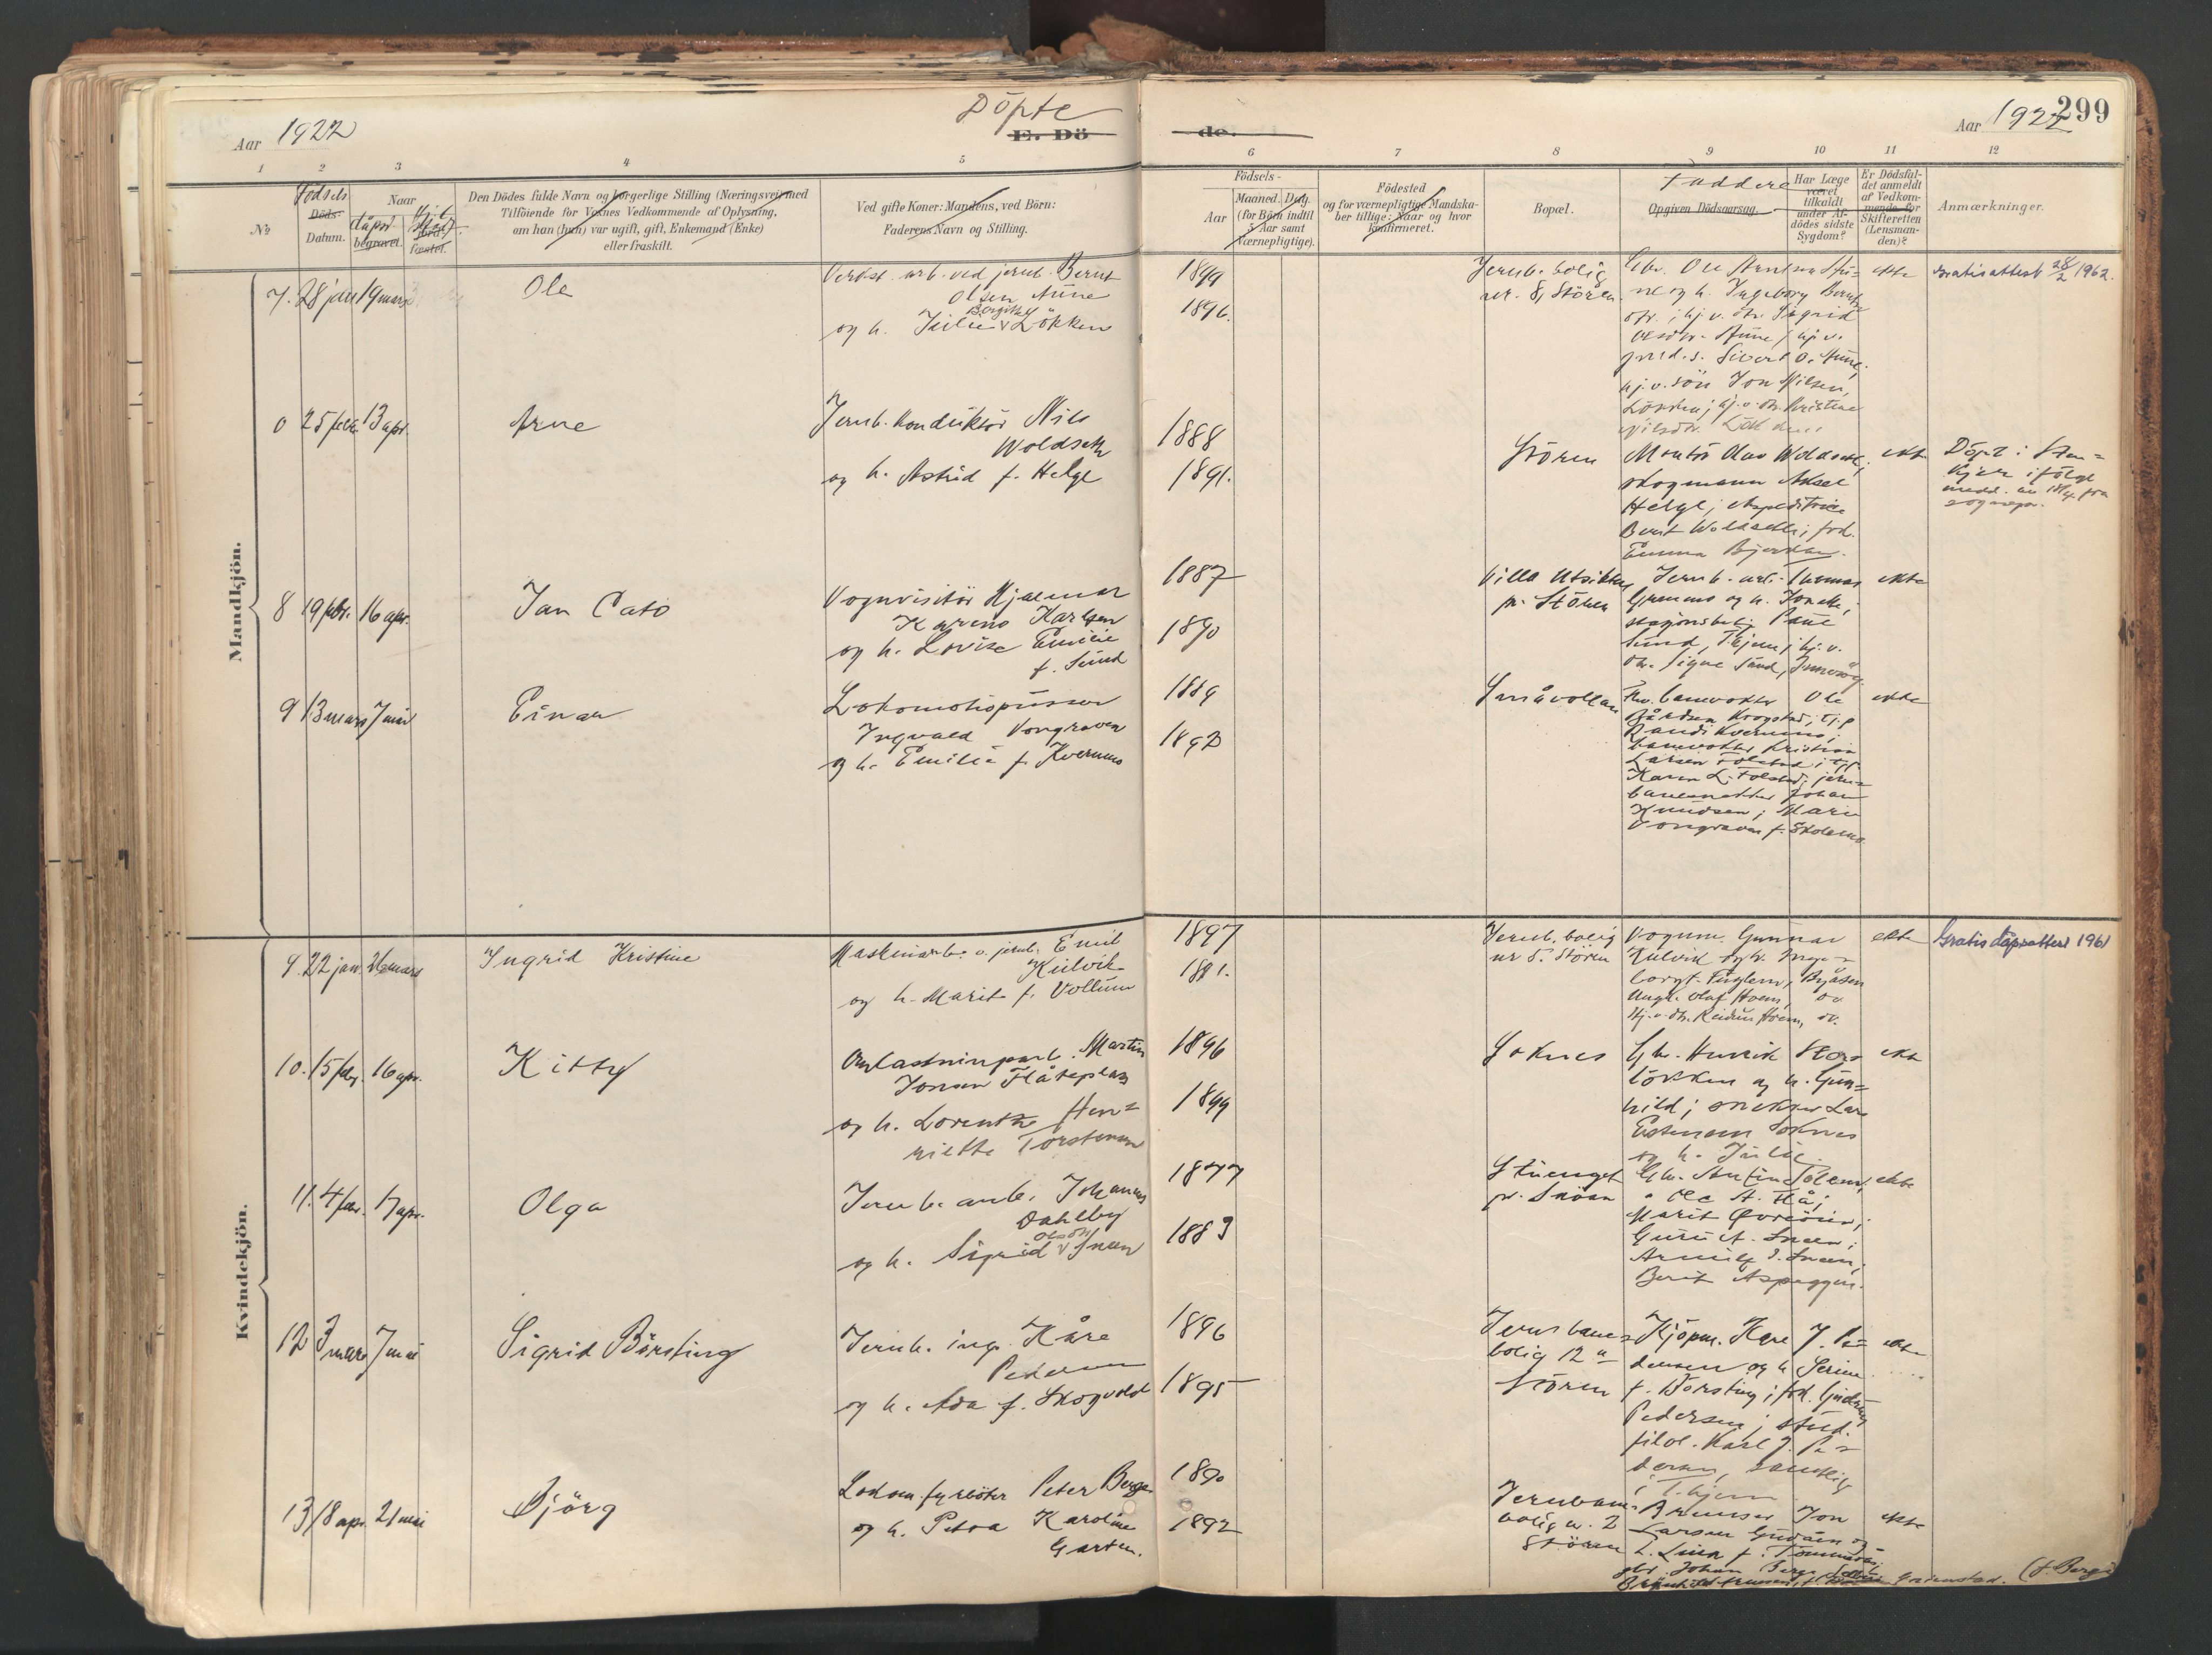 Döpte
Aar 1922
E. Dö
de.
Aar 1922
299
1 2 3 4 5 6 7 8 9 10 11 12
№
Födsels
Döds-
Datum.
Naar
döpt
begravet.
Den Dödes fulde Navn og borgerlige Stilling (Næringsvei) med
Tilföiende for Voxnes Vedkommende af Oplysning,
om han (hun) var ugift, gift, Enkemand (Enke)
eller fraskilt.
Ved gifte Koner: Mandens, ved Börn:
Faderens Navn og Stilling.
Födsels-
Aar
Maaned. Dag.
(for Börn indtil
5 Aar samt
Værnepligtige).
Födested
og for værnepligtige Mandska-
ber tillige: Naar og hvor
konfirmeret.
Bopæl.
Faddere
Opgiven Dödsaarsag.
Har Læge
været
tilkaldt
under Af-
dödes sidste
Sygdom?
Er Dödsfal-
det anmeldt
af Vedkom-
mende for
Skifteretten
(Lensman-
den)?
Anmærkninger.
Mandkjön.
7. 28 jan 19 mars
Ole
Verkst. arb. ved jernb. Bernt
Olsen Aune
Bergitte
og h. Julie Løkken
1899
1896.
Jernb. bolig
nr. 8, Stören
Gbr. Ole Arntsen Au-
ne og h. Ingeborg Bernts
dtr. ; hj. v. dtr. Sigrid
Olsdtr. Aune ; hj. v.
s. Sivert O. Aune;
hj. v. sön Jon Nilsen
Løkken; hj. v. dtr. Kristine
Nilsdtr. Løkken
ekte
Gratis attest 28/2 1962.
0 25 febr. 13 apr.
Arne
Jernb. konduktör Nils
Woldseth
og h. Astrid f. Helge
1888
1891.
Stören
Montör Olav Woldseth;
skogmann Aksel
Helge; ekspeditrice
Berit Woldseth; frk.
Emma Bjerkan.
ekte
Döpt i Sten-
kjær ifölge
medd. av 18/4 fra
sognepr.
8 19 febr. 16 apr.
Jan Cato
Vognvisitör Hjalmar
Karlsen
og h. Lovise Emilie
f. Sund
1887
1890
Villa Utsikten
pr. Stören
Jernb. arb.
og h.
Sund, T.hjem; hj. v.
dtr. Signe Sund,
ekte
9 13 mars 7 mai
Einar
Lokomotivpusser
Ingvald Vongraven
og h. Emilie f. Kvernmo
1889
1892
Småvollan
Fhv. banevokter Ole
Bårdsen Krogstad; tj.p.
Randi Kvernmo;
banevokter Kristian
Larsen Folstad; tj.p.
Karen L. Folstad; jern-
banesnekker Johan
Knudsen; Marie
Vongraven f.
ekte
Kvindekjön.
9. 22 jan. 26 mars
Ingrid Kristine
Maskinarb. v. jernb. Emil
Kulvik
og h. Marit f. Vollum
1897
1891.
Jernb. bolig
nr 5. Stören
Vognm. Gunnar
Kulvik og h. Inge-
borg f. Fuglem, Byåsen
Ungk. Olaf Hoem,
Hj. v. dtr. Reidun Hoem,
ekte
Gratis dåpsattest 1961
10. 15 febr. 16 apr.
Kitty
Omlastningsarb. Martin
Jonsen Flåteplass
og h. Lorentze Hen-
riette Torstensen
1896
1899
Soknes
Gbr. Henrik Stor-
løkken og h. Gun-
hild; snekker Lars
Estensen Soknes
og h. Julie.
ekte
11. 4 febr. 17 apr.
Olga
Jernb. arb. Johannes
Dahlby
Olsdtr
og h. Sigrid Snøen
1877
1883
pr. Snöan
Gbr.
" Ole A. Hå;
Marit
Guru A. Snøen;
Arnulf S. Snøen;
Berit Aspeggen.
ekte
12 3 mars 7 mai
Sigrid Börsting
Jernb. ing. Kåre
Pedersen
og h. Ada f. Skogvold
1896
1895
Jernbane-
bolig 12 a
Stören
Kjöpm. Kare J. Pe-
dersen og h. Serine
f. Börsting; frk. Gudrun
Pedersen; stud.
filol. Karl J. Pe-
dersen, samtlige
i T.hjem
ekte
13 18 apr. 21 mai
Bjørg
Lokom. fyrböter Peter Berge
og h. Petra Karoline
Garten.
1890
1892
Jernbane-
bolig nr. 2
Stören
Bremser Jon
Larsen og
h. Lina f.
Johan Berge
(f. Berge
ekte